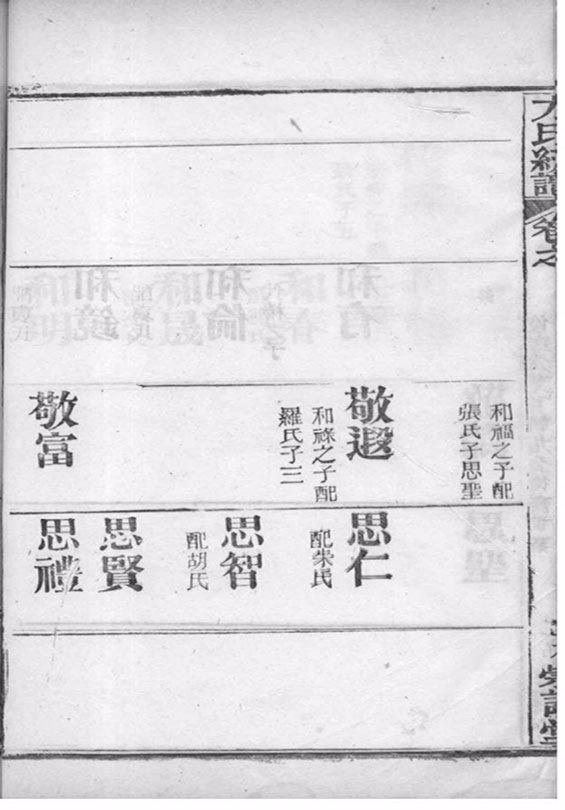 氏統譜
卷之
和福之子配
張氏子思聖
敬遐
和祿之子配
羅氏子三
敬富
思仁
配柴氏
思智
配胡氏
思賢
思禮